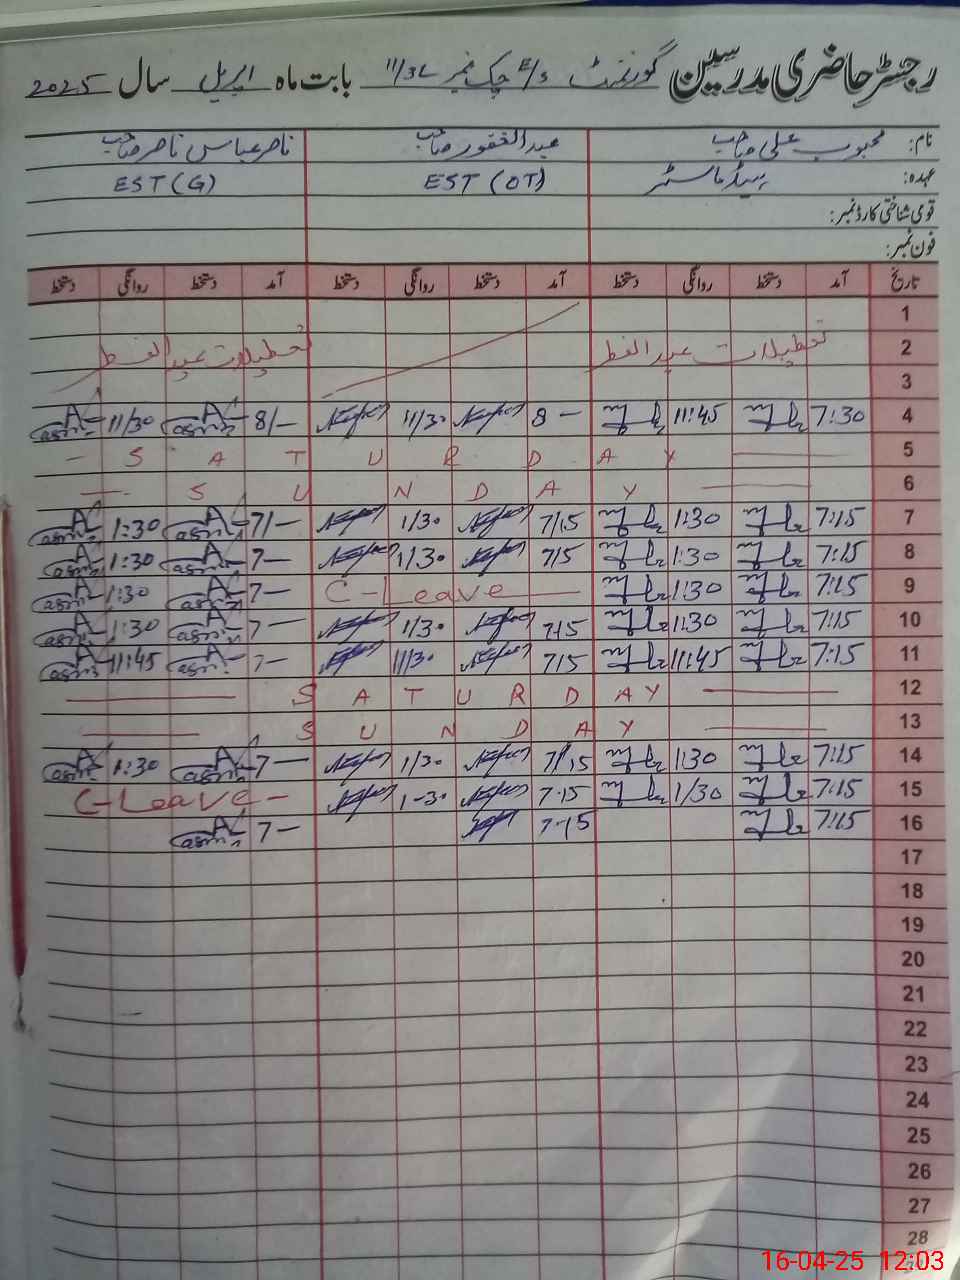 رجسٹر حاضری مدرسین گورنمنٹ E/S چک نمبر 11/3L بابت ماہ اپریل سال 2025
نام: محبوب علی صاحب عبدالغفور صاحب ناصر عباس ناصر صاحب
عہدہ: ہیڈ ماسٹر EST (OT) EST (G)
قومی شناختی کارڈ نمبر:
فون نمبر:
تاریخ آمد دستخط روانگی دستخط آمد دستخط روانگی دستخط آمد دستخط روانگی دستخط
1
2 تعطیلات عید الفطر تعطیلات عید الفطر
3
4 7:30 11:45 8 — 11/30 8/— 11/30
5 SATURDAY
6 SUNDAY
7 7:15 1:30 7/15 1/30 7/— 1:30
8 7:15 1:30 7/15 1/30 7— 1:30
9 7:15 1:30 C-Leave 7— 1:30
10 7:15 1:30 7.15 1/30 7— 1:30
11 7:15 11:45 7.15 11/30 7— 11:45
12 SATURDAY
13 SUNDAY
14 7:15 1:30 7/15 1/30 7— 1:30
15 7:15 1/30 7.15 1-30 C-Leave
16 7:15 7.15 7—
17
18
19
20
21
22
23
24
25
26
27
28
16-04-25 12:03